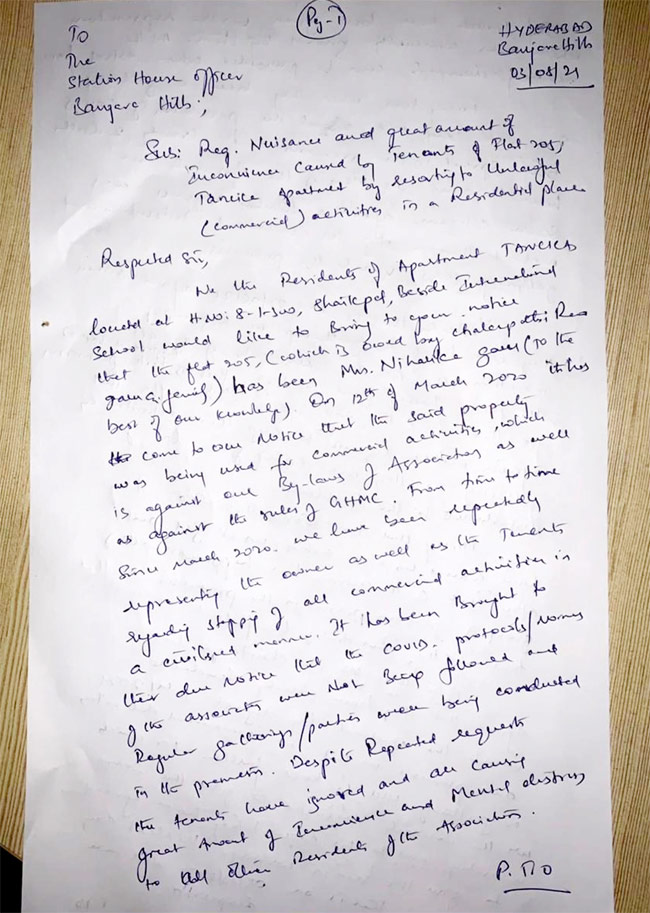 Pg-1
To
The
Station House officer
Banjara Hills,
HYDERABAD
Banjara Hills
03/08/21
Sub: Reg. Nuisance and great amount of
Inconvience Caused by Tenants of Flat 205,
Apartment by resorting to Unlawful
(commercial) activities in a Residential place
Respected Sir,
We the Residents of Apartment
located at H.No: 8-1- Beside International
School would like to Bring to your notice
that the flat 205, (which is owed by chalapathi Rao
garu & family) has been Mrs. Niharika garu (to the
best of our knowledge). On 12th of March 2020 it has
come to our Notice that the said property
was being used for commercial activities, which
is against our By-laws of Association as well
as against the rules of GHMC. From time to time
Since March 2020. we have been repeatedly
representing the owner as well as the Tenants
regarding stopping of all commercial activities in
a civilised manner. It has been Brought to
their due Notice that the covid. protocols/norms
of the association were Not Being followed and
Regular gatherings/parties were being conducted
in the premises. Despite Repeated requests
the tenants have ignored and are causing
great Amount of Inconvience and Mental distress
to all other Residents of the Association.
P.T.O